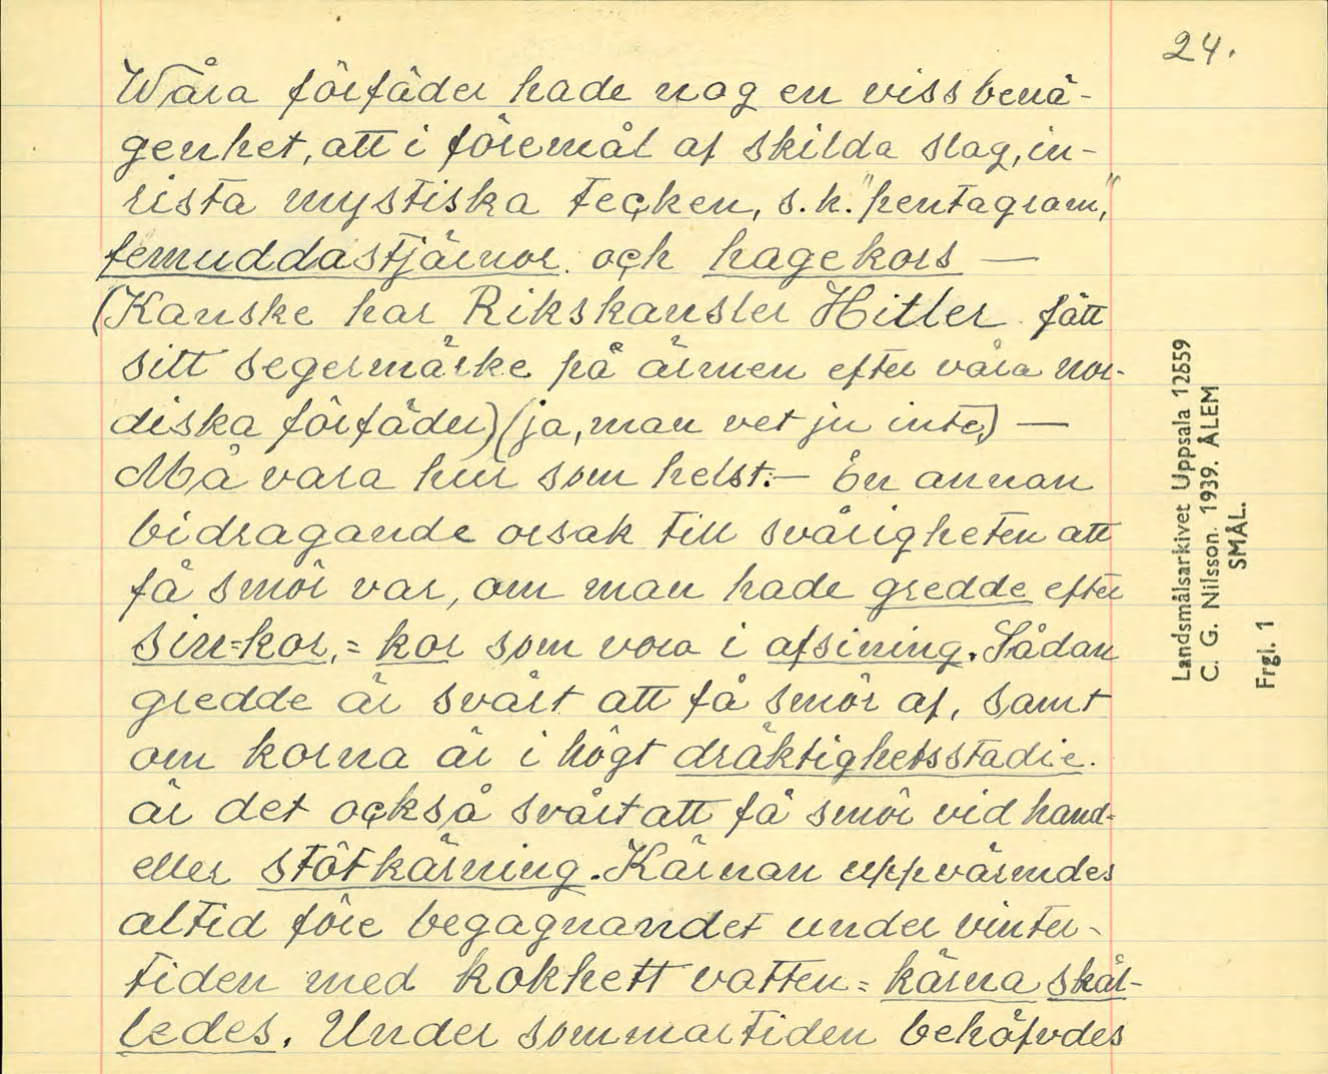 24.
Wåra förfäder hade nog en viss benä-
genhet, att i föremål af skilda slag, in-
rista mystiska tecken, s.k. "pentagram,"
femuddastjärnor och hagekors —
(Kanske har Rikskansler Hitler fått
sitt segermärke på ärmen efter våra nor-
diska förfäder) (ja, man vet ju inte,) —
Må vara hur som helst. — En annan
bidragande orsak till svårigheten att
få smör var, om man hade gredde efter
sin=kor, = kor som vora i afsining. Sådan
gredde är svårt att få smör af, samt
om korna är i högt dräktighetsstadie.
är det också svårt att få smör vid hand-
eller stötkärning. Kärnan uppvärmdes
altid före begagnandet under vinter-
tiden med kokhett vatten = kärna skål-
ledes. Under sommartiden behöfvdes
Landsmålsarkivet Uppsala 12559
C. G. Nilsson. 1939. ÅLEM
SMÅL.
Frgl. 1